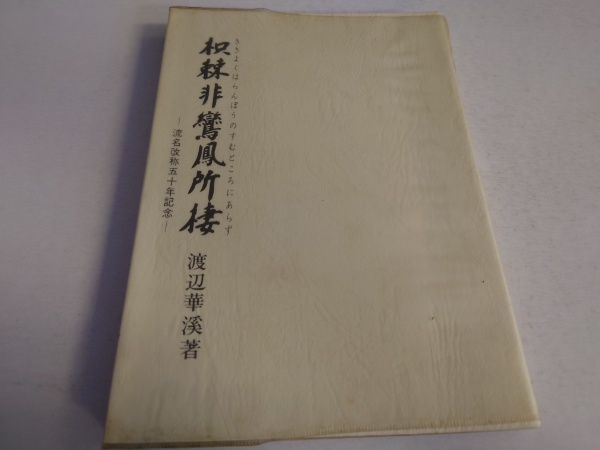 枳棘非鸞鳳所棲
ききよくはらんぽうのすむところにあらず
―流名改称五十年記念―
渡辺華溪著